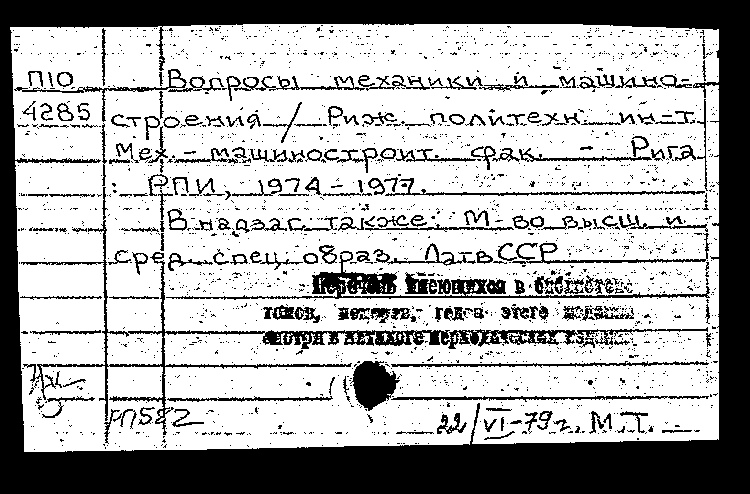 П10 Вопросы механики и машино-
4285 строения / Риж. политехн. ин-т.
Мех.-машиностроит. фак. - Рига
: РПИ, 1974-1977.
В надзаг. также: М-во высш. и
сред. спец. образ. ЛатвССР
Перечень имеющихся в библиотеке
томов, номеров, годов этого издания
смотри в каталоге периодических изданий
РП582 22/VI-79г. М.Т.